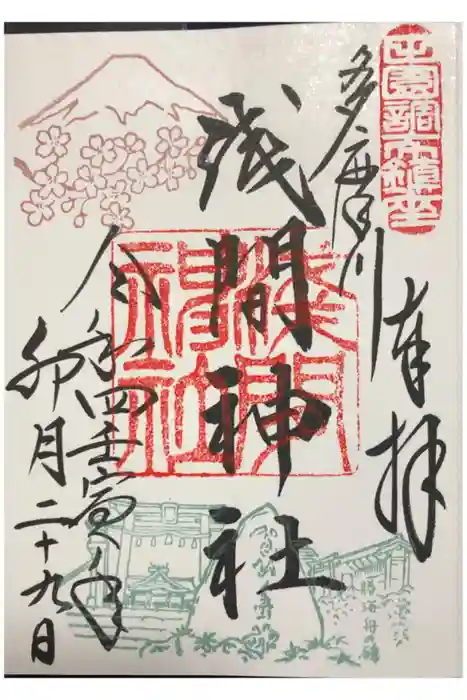 田園調布鎮座
多摩川
奉拝
浅間神社
浅間神社
令和四壬寅年
卯月二十九日